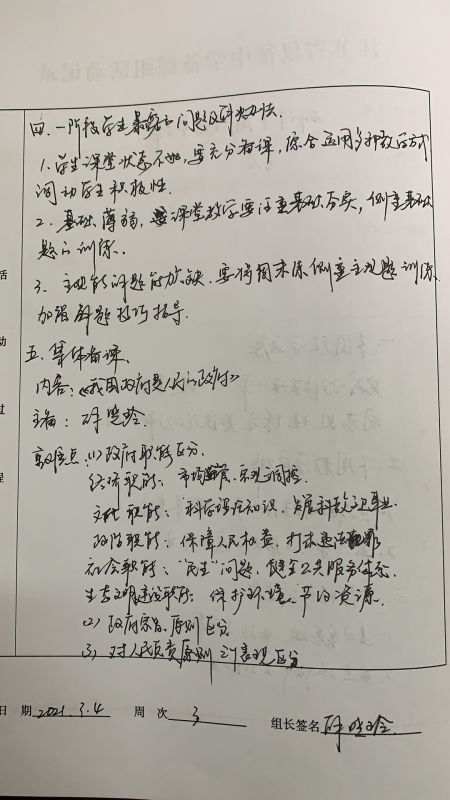 四.一阶段学生暴露的问题及解决办法.
1.学生课堂状态不佳,要充分备课,综合运用多种教学方式
调动学生积极性.
2.基础薄弱,课堂教学要注重基础夯实,侧重基础
题的训练.
3.主观题解题能力欠缺.要将周末练侧重主观题训练.
加强解题技巧指导.
五.集体备课.
内容:《我国政府是人民的政府》
主备:
重难点:(1)政府职能区分.
经济职能:市场监管,宏观调控.
文化职能:科学理论知识,发展科教文卫事业.
政治职能:保障人民权益,打击违法犯罪
社会职能:“民生”问题,健全公共服务体系.
生态文明建设职能:保护环境、节约资源.
(2)政府宗旨、原则区分
(3)对人民负责原则的表现区分
话
动
过
程
日 期 2021.3.4 周 次 3 组长签名